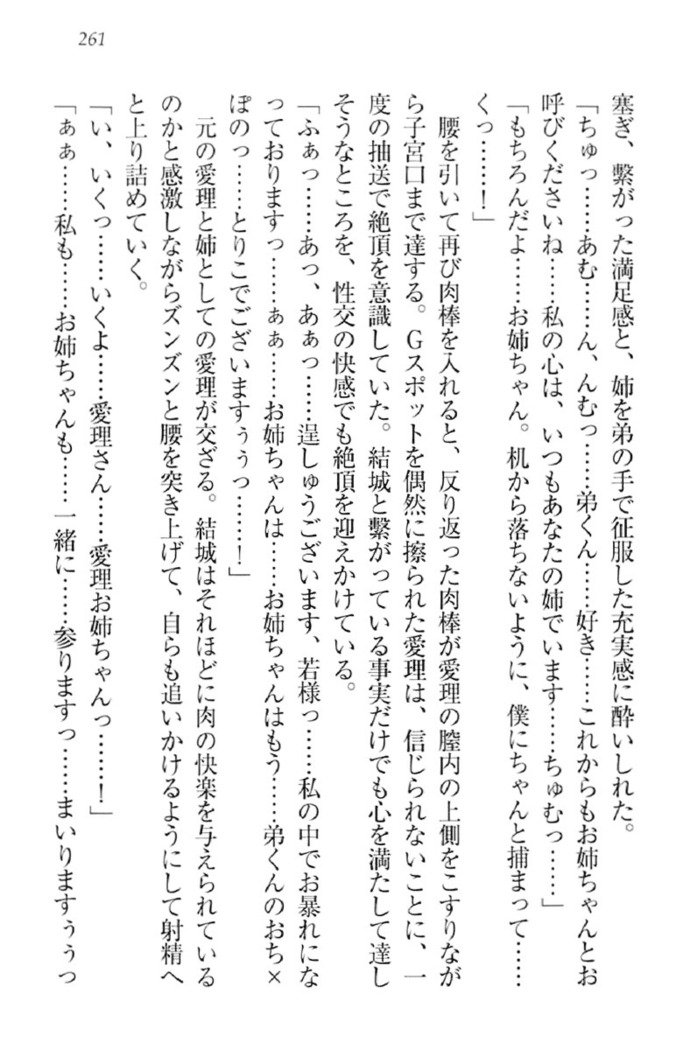 261
塞ぎ、繋がった満足感と、姉を弟の手で征服した充実感に酔いしれた。
「ちゅっ……あむ……ん、んむっ……弟くん……好き……これからもお姉ちゃんとお
呼びくださいね……私の心は、いつもあなたの姉でいます……ちゅむっ……」
「もちろんだよ……お姉ちゃん。机から落ちないように、僕にちゃんと捕まって……
くっ……！」
　腰を引いて再び肉棒を入れると、反り返った肉棒が愛理の膣内の上側をこすりなが
ら子宮口まで達する。Gスポットを偶然に擦られた愛理は、信じられないことに、一
度の抽送で絶頂を意識していた。結城と繋がっている事実だけでも心を満たして達し
そうなところを、性交の快感でも絶頂を迎えかけている。
「ふぁっ……あっ、あぁっ……逞しゅうございます、若様っ……私の中でお暴れにな
っておりますっ……ぁぁ……お姉ちゃんは……お姉ちゃんはもう……弟くんのおち×
ぽのっ……とりこでございますぅぅっ……！」
　元の愛理と姉としての愛理が交ざる。結城はそれほどに肉の快楽を与えられている
のかと感激しながらズンズンと腰を突き上げて、自らも追いかけるようにして射精へ
と上り詰めていく。
「い、いくっ……いくよ……愛理さん……愛理お姉ちゃんっ……！」
「ぁぁ……私も……お姉ちゃんも……一緒に……参りますっ……まいりますぅぅっ